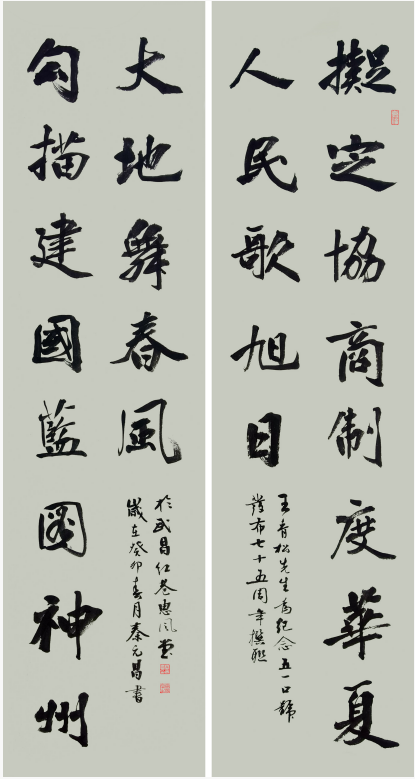 擬定協商制度華夏
人民歌旭日
王青松先生為紀念五一口號
發布七十五周年撰聯
勾描建國藍圖神州
大地舞春風
歲在癸卯春月秦元昌書
於武昌紅巷惠风堂